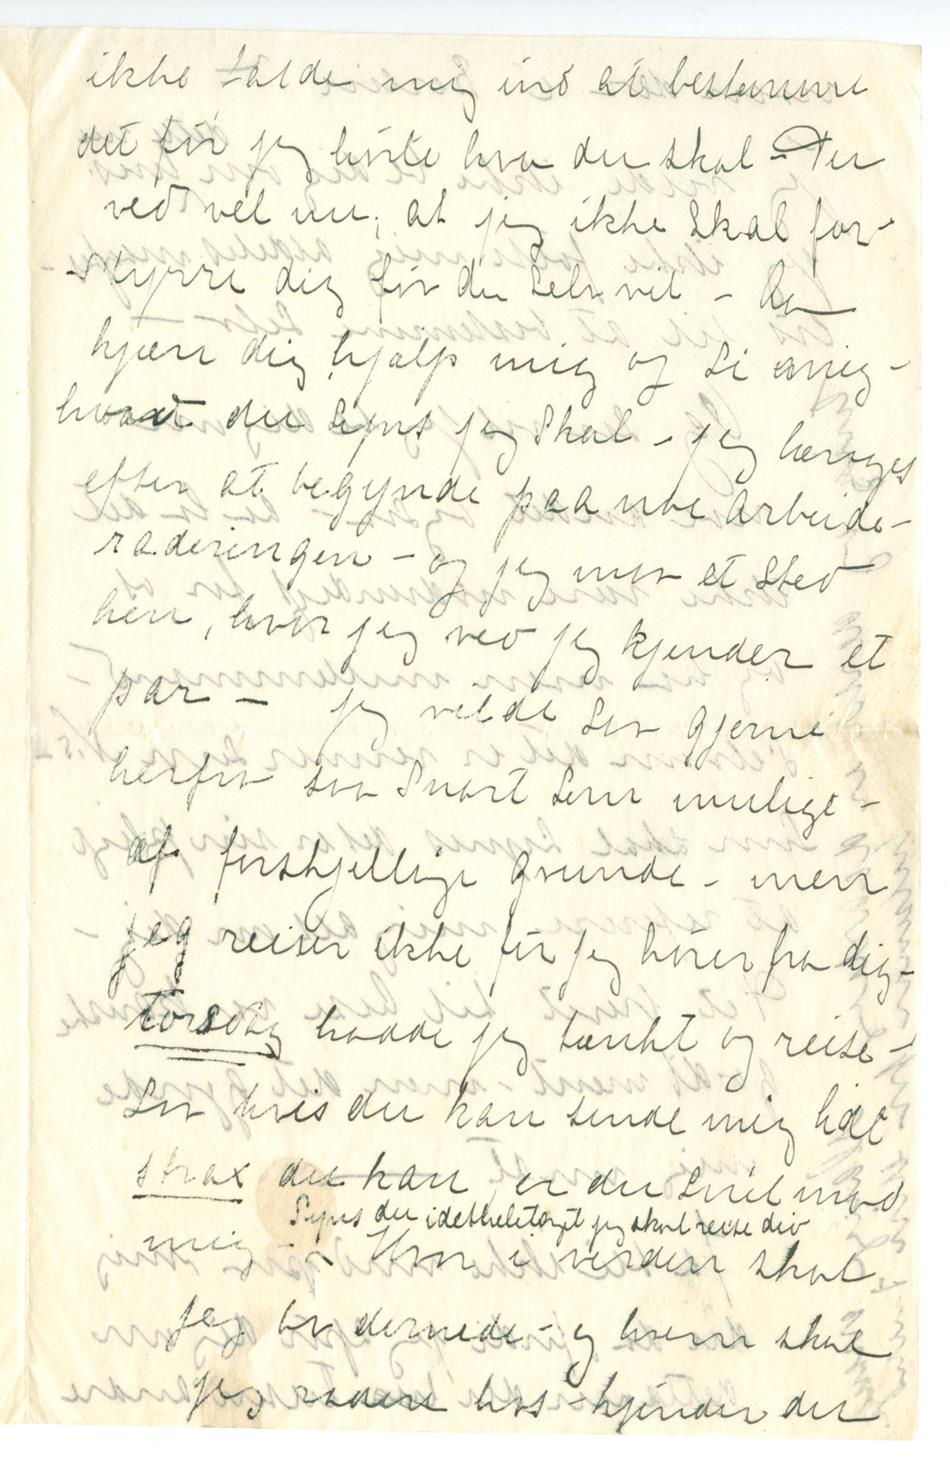 ikke falde mig ind at bestemme
det før jeg hørte hva du skal – Du
ved vel nu, at jeg ikke skal for-
styrre dig før du selv vil –
kjære dig hjælp mig og si mig –
hvad du synes jeg skal – jeg længes
efter at begynde paa noe arbeide –
raderingen – og jeg maa et sted
hen, hvor jeg ved jeg kjender et
par – jeg vilde saa gjerne
herfra saa snart som mulige –
af forskjellige grunde – men
jeg reiser ikke før jeg hører fra dig –
torsdag hadde jeg tænkt og reise –
Saa hvis du kan sende mig lidt
strax du kan er du snil mod
mig – Synes du idethele taget jeg skal reise did
Hvor i verden skal
jeg bo dernede – og hvem skal
jeg radere hos – kjender du